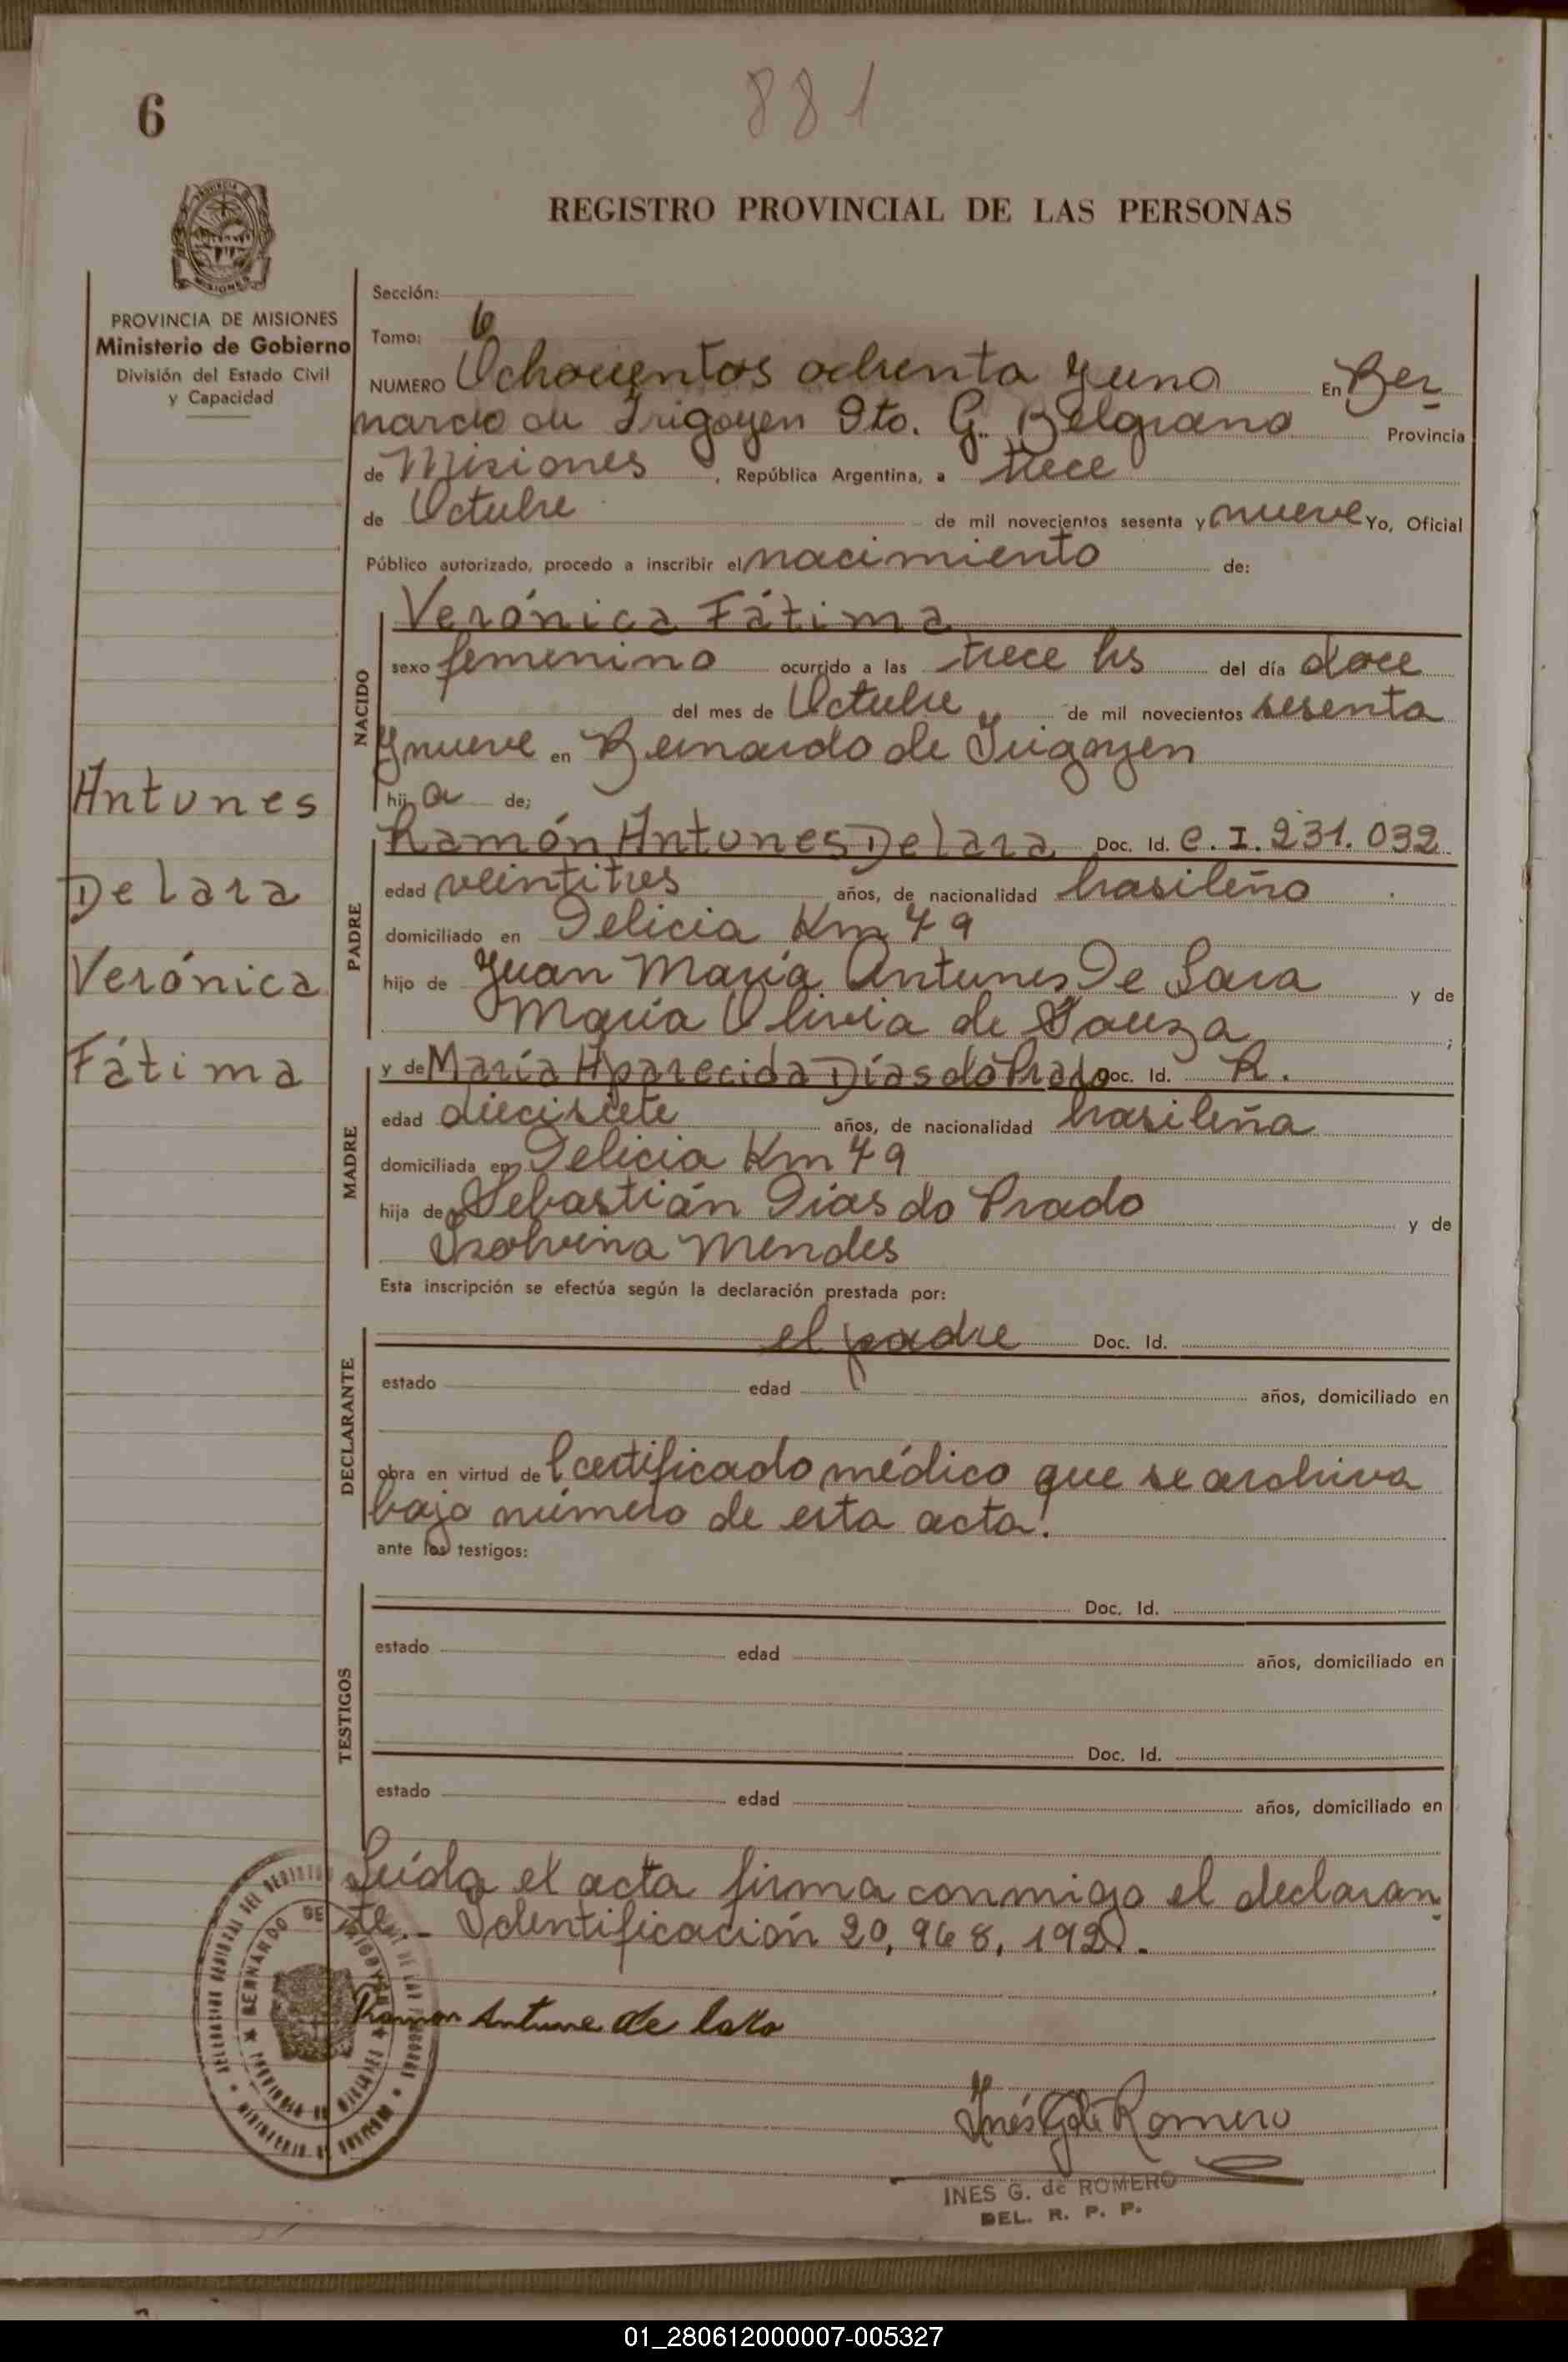 6
881
REGISTRO PROVINCIAL DE LAS PERSONAS
PROVINCIA DE MISIONES
Ministerio de Gobierno
División del Estado Civil
y Capacidad
Sección:
Tomo: 6
NUMERO Ochocientos ochenta y uno En Ber
nardo de Irigoyen Dto. G. Belgrano Provincia
de Misiones, República Argentina, a trece
de Octubre de mil novecientos sesenta y nueve Yo, Oficial
Público autorizado, procedo a inscribir el nacimiento de:
NACIDO
Verónica Fátima
sexo femenino ocurrido a las trece hs del día doce
del mes de Octubre de mil novecientos sesenta
y nueve en Bernardo de Irigoyen
hija de;
Antunes
De lara
Verónica
Fátima
PADRE
Ramón Antunes De lara Doc. Id. C. I. 231.032
edad veintitres años, de nacionalidad brasileño
domiciliado en Delicia Km 49
hijo de Juan María Antunes De Lara y de
María Olivia de Souza;
MADRE
y de María Aparecida Días do Prado Doc. Id. R.
edad diecisiete años, de nacionalidad brasileña
domiciliada en Delicia Km 49
hija de Sebastián Dias do Prado y de
Isolvina Mendes
Esta inscripción se efectúa según la declaración prestada por:
DECLARANTE
el padre Doc. Id.
estado edad años, domiciliado en
obra en virtud del certificado médico que se archiva
bajo número de esta acta.
ante los testigos:
TESTIGOS
Doc. Id.
estado edad años, domiciliado en
Doc. Id.
estado edad años, domiciliado en
Leída el acta firma conmigo el declaran
te.- Identificación 20,968,192.
BERNARDO DE IRIGOYEN
Ramon Antune de lara
Inés G. de Romero
INES G. de ROMERO
DEL. R. P. P.
01_280612000007-005327